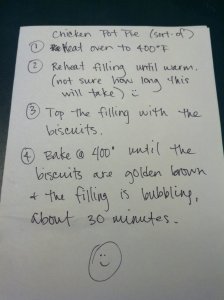 Chicken Pot Pie (sort-of)
① Heat oven to 400°F
② Reheat filling until warm.
(not sure how long this
will take) :)
③ Top the filling with the
biscuits.
④ Bake @ 400° until the
biscuits are golden brown
+ the filling is bubbling,
about 30 minutes.